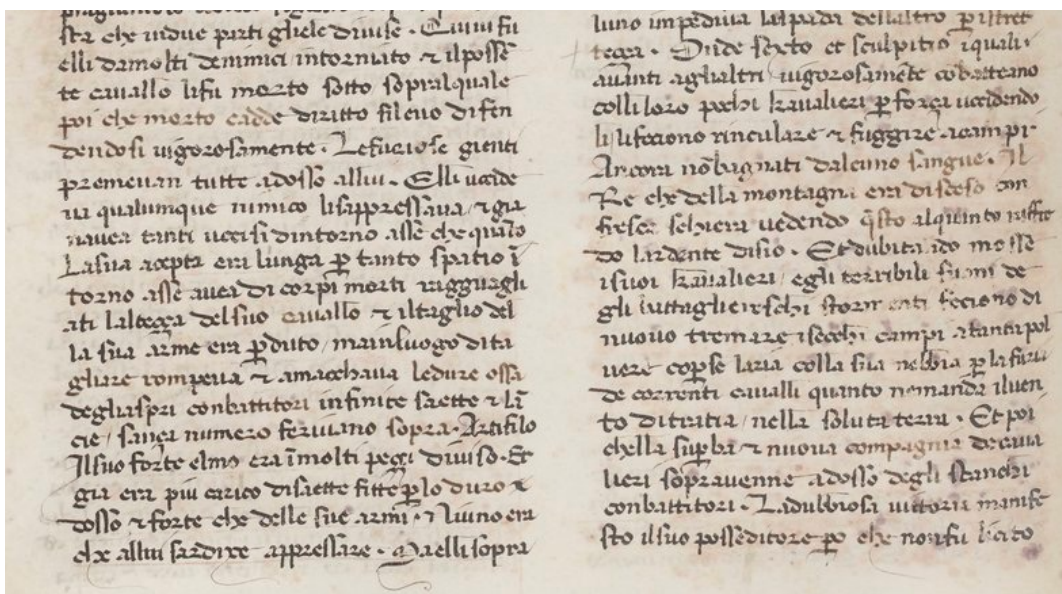 sta che indue parti gliele divise . Quivi fu
elli damolti denimici intorniato ⁊ il posse͞
te cavallo lifu morto sotto sopralquale
poi che morto cadde diritto silevo difen
dendosi vigorosamente . Lefuriose gienti
premevan tutte adosso allui . Elli uccide
va qualumque nimico lisappressava / ⁊ gia
navea tanti uccisi dintorno asse che qua͞to
Lasua accepta era lunga p̱ tanto spatio i͞
torno asse avea di corpi morti raggugli
ati laltecça del suo cavallo ⁊ iltaglio del
la sua arme era p̱duto / mainluogo dita
gliare rompeva ⁊ amacchava ledure ossa
degliaspri conbattitori infinite saette ⁊ la͞
cie / sança numero feriuano sopra . Artifilo
Ilsuo forte elmo era i͞molti peççi diviso . Et
gia era piu carico disaette fitte p̱lo duro
dosso ⁊ forte che delle sue armi . ⁊ niuno era
che allui sardixe appressare . Maelli sopra
luno impediva laspada dellaltro p̱ istret
tecça . Onde sexto et sculpitio iquali
avanti aglialtri vigorosame͞te co͞batteano
colli loro pochi kavalieri p̱ força uccidendo
li lifeciono rinculare ⁊ fuggire acampi
Ancora no͞ bagnati dalcuno sangue . Il
Re che della montagna era disceso con
fresca schiera vedendo q̄sto alquanto raffre
do lardente disio . Et dubitando mosse
isuoi kavalieri / egli terribili suoni de
gli battagliereschi stormenti feciono di
nuovo tremare isecchi campi atanta pol
vere coperse laria colla sua nebbia p̱ la furia
de correnti cavalli quanto nemanda ilven
to ditratia / nella soluta terra . Et poi
chella sup̱ba ⁊ nuova compagnia decava
lieri sopravenne adosso degli stanchi
conbattitori . Ladubbiosa vittoria manife
sto ilsuo posseditore p̱o che nonfu licito